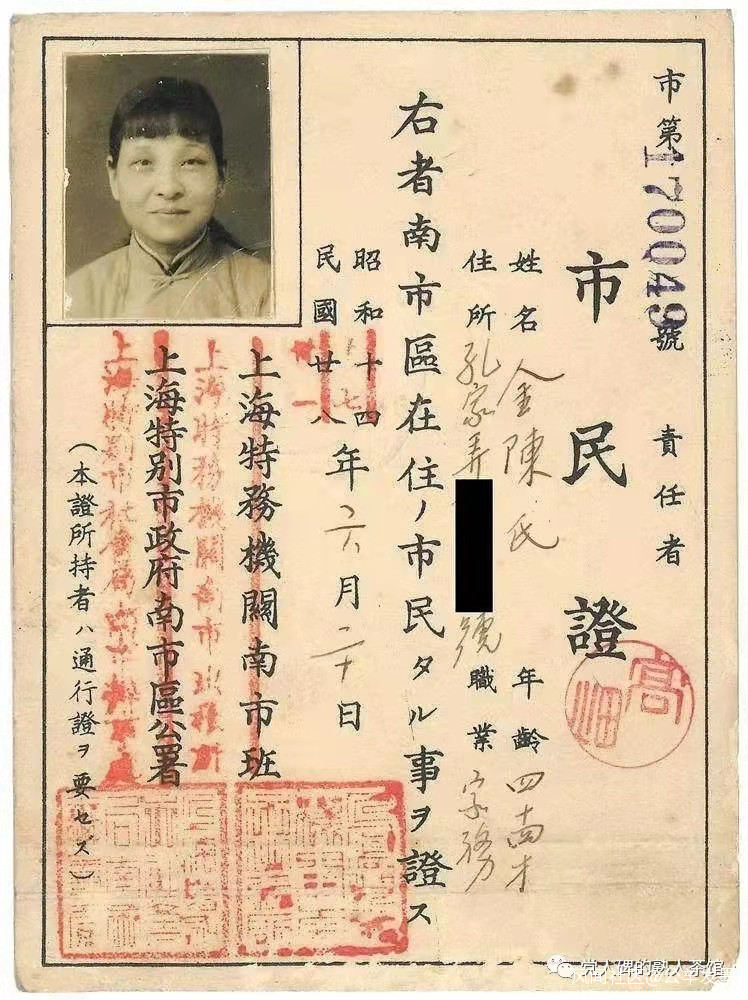 市第170049號 責任者
市民證
高畑
姓名 金陳氏 年齡 四 才
住所 孔家弄 號 職業 家務
右者南市區在住ノ市民タル事ヲ證ス
昭和十四
七
民國廿八
卅一
年六月二十日
上海特務機關南市班
上海特務機關南市班
上海特別市政府南市區公署
上海特別市社會局南市辦事處
(本證所持者ハ通行證ヲ要セズ)
党人碑的熟人茶馆